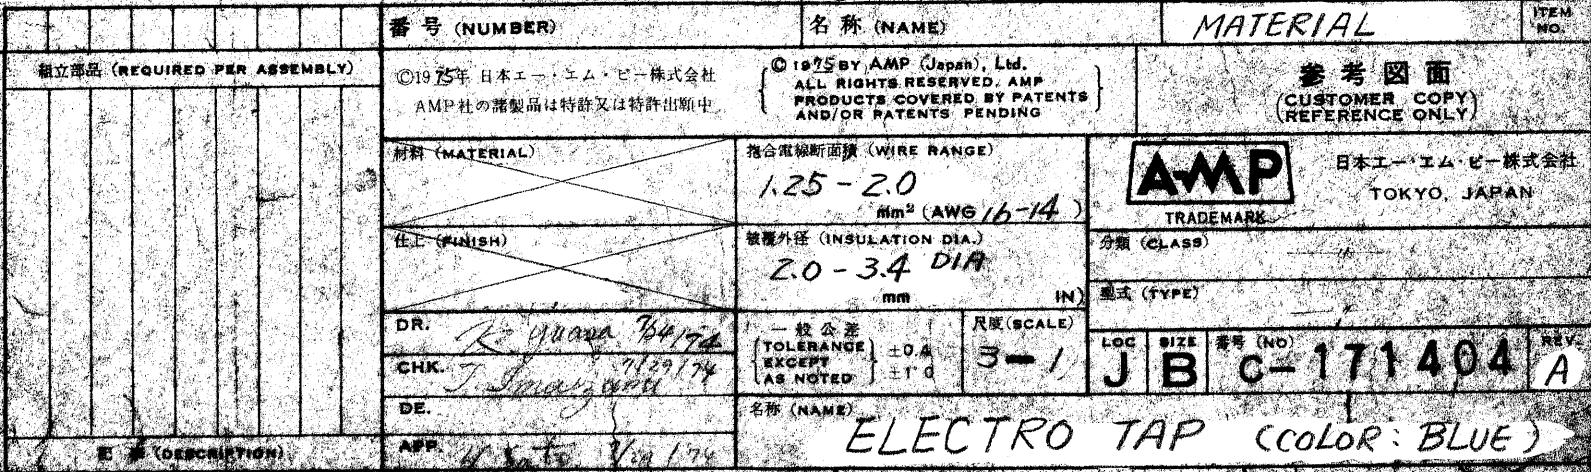 番号 (NUMBER)
名称 (NAME)
MATERIAL
ITEM NO.
組立部品 (REQUIRED PER ASSEMBLY)
©1975年 日本エー・エム・ピー株式会社
AMP社の諸製品は特許又は特許出願中
© 1975 BY AMP (Japan), Ltd.
ALL RIGHTS RESERVED. AMP
PRODUCTS COVERED BY PATENTS
AND/OR PATENTS PENDING
参考図面
(CUSTOMER COPY)
(REFERENCE ONLY)
材料 (MATERIAL)
抱合電線断面積 (WIRE RANGE)
1.25 - 2.0
mm² (AWG 16-14)
AMP
TRADEMARK
日本エー・エム・ピー株式会社
TOKYO, JAPAN
仕上 (FINISH)
被覆外径 (INSULATION DIA.)
2.0 - 3.4 DIA
mm
IN)
分類 (CLASS)
型式 (TYPE)
DR.
K.
CHK.
7/29/74
T. Imaizumi
DE.
APP.
一般公差
TOLERANCE
EXCEPT
AS NOTED
±0.4
尺度 (SCALE)
3-1
LOC
J
SIZE
B
番号 (NO)
C-171404
REV.
A
名称 (NAME)
ELECTRO TAP (COLOR: BLUE)
(DESCRIPTION)